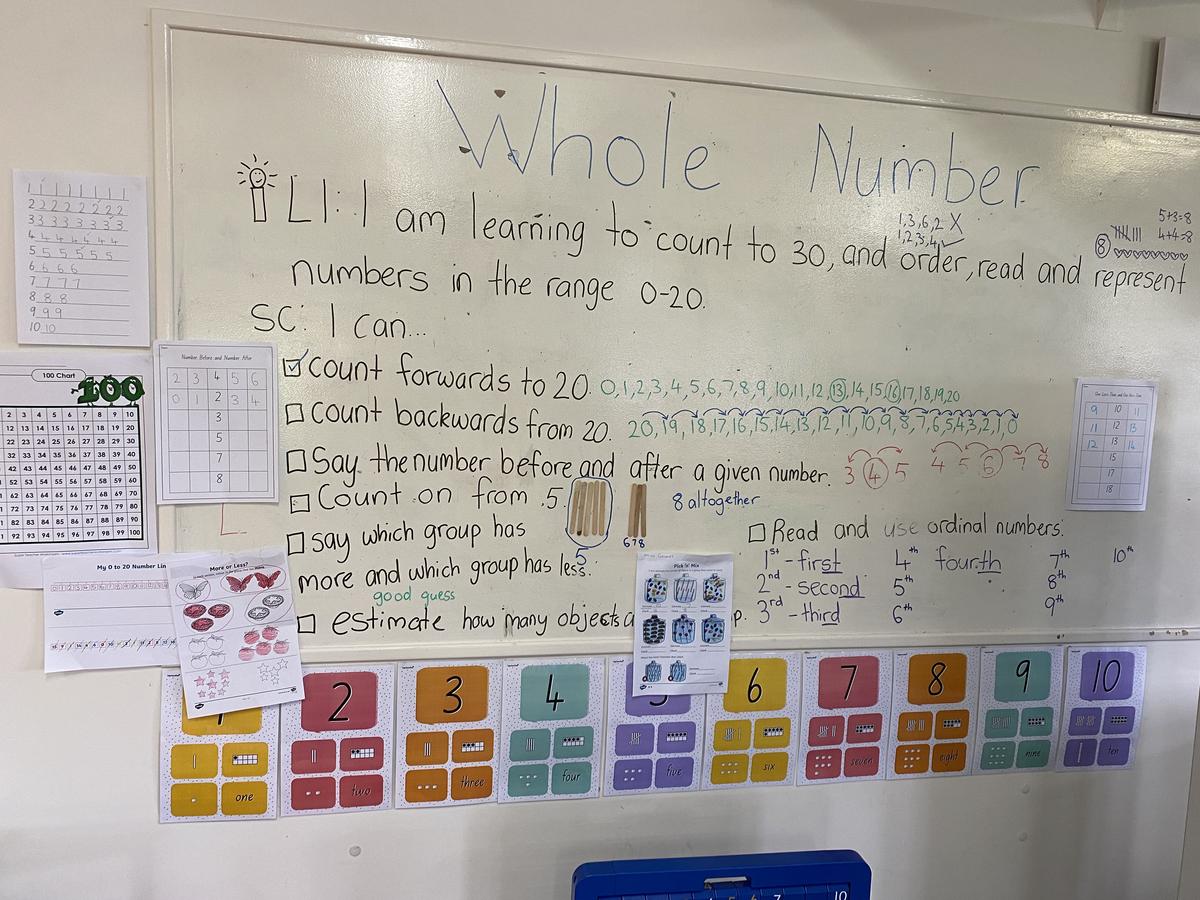 Whole Number
LI: I am learning to count to 30, and order, read and represent
numbers in the range 0-20.
1,3,6,2 X
1,2,3,4
5+3=8
4+4=8
8
SC: I can...
count forwards to 20. 0,1,2,3,4,5,6,7,8,9,10,11,12,13,14,15,16,17,18,19,20
count backwards from 20. 20,19,18,17,16,15,14,13,12,11,10,9,8,7,6,5,4,3,2,1,0
Say the number before and after a given number. 3 4 5 4 5 6 7 8
Count on from 5. 8 altogether
5 6 7 8
say which group has
more and which group has less.
good guess
estimate how many objects
Read and use ordinal numbers.
1st - first 4th fourth 7th 10th
2nd - second 5th 8th
3rd - third 6th 9th
1 1 1 1 1 1 1
2 2 2 2 2 2 2 2
3 3 3 3 3 3 3 3
4 4 4 4 4 4 4
5 5 5 5 5 5 5
6 6 6 6
7 7 7 7
8 8 8 8
9 9 9
10 10
100 Chart
100
2 3 4 5 6 7 8 9 10
12 13 14 15 16 17 18 19 20
22 23 24 25 26 27 28 29 30
32 33 34 35 36 37 38 39 40
42 43 44 45 46 47 48 49 50
52 53 54 55 56 57 58 59 60
62 63 64 65 66 67 68 69 70
72 73 74 75 76 77 78 79 80
82 83 84 85 86 87 88 89 90
92 93 94 95 96 97 98 99 100
Number Before and Number After
2 3 4 5 6
0 1 2 3 4
3
5
7
8
My 0 to 20 Number Lin
More or Less?
Pick 'n' Mix
9 10 11
11 12 13
12 13 14
15
17
18
1 2 3 4 5 6 7 8 9 10
one two three four five six seven eight nine ten
7 10